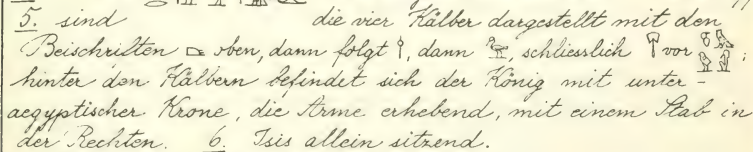 5. sind die vier Kälber dargestellt mit den
Beischriften oben, dann folgt, dann, schliesslich vor ;
hinter den Kälbern befindet sich der König mit unter-
aegyptischer Krone, die Arme erhebend, mit einem Stab in
der Rechten. 6. Isis allein sitzend.